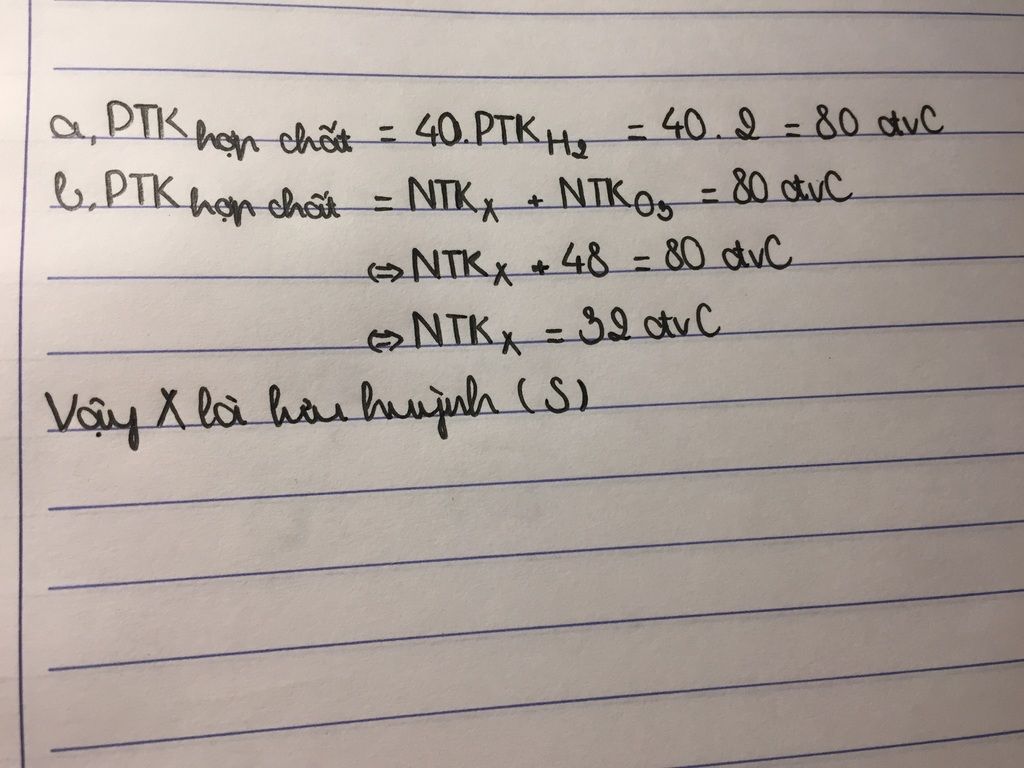 a, PTK hợp chất = 40.PTK H2 = 40.2 = 80 đvC
b, PTK hợp chất = NTK X + NTK O3 = 80 đvC
⇔ NTK X + 48 = 80 đvC
⇔ NTK X = 32 đvC
Vậy X là lưu huỳnh (S)